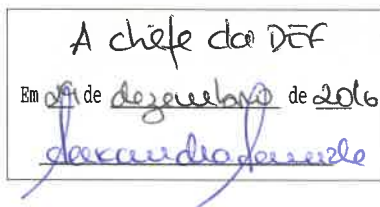 A chefe da DEF
Em de dezembro de 2016